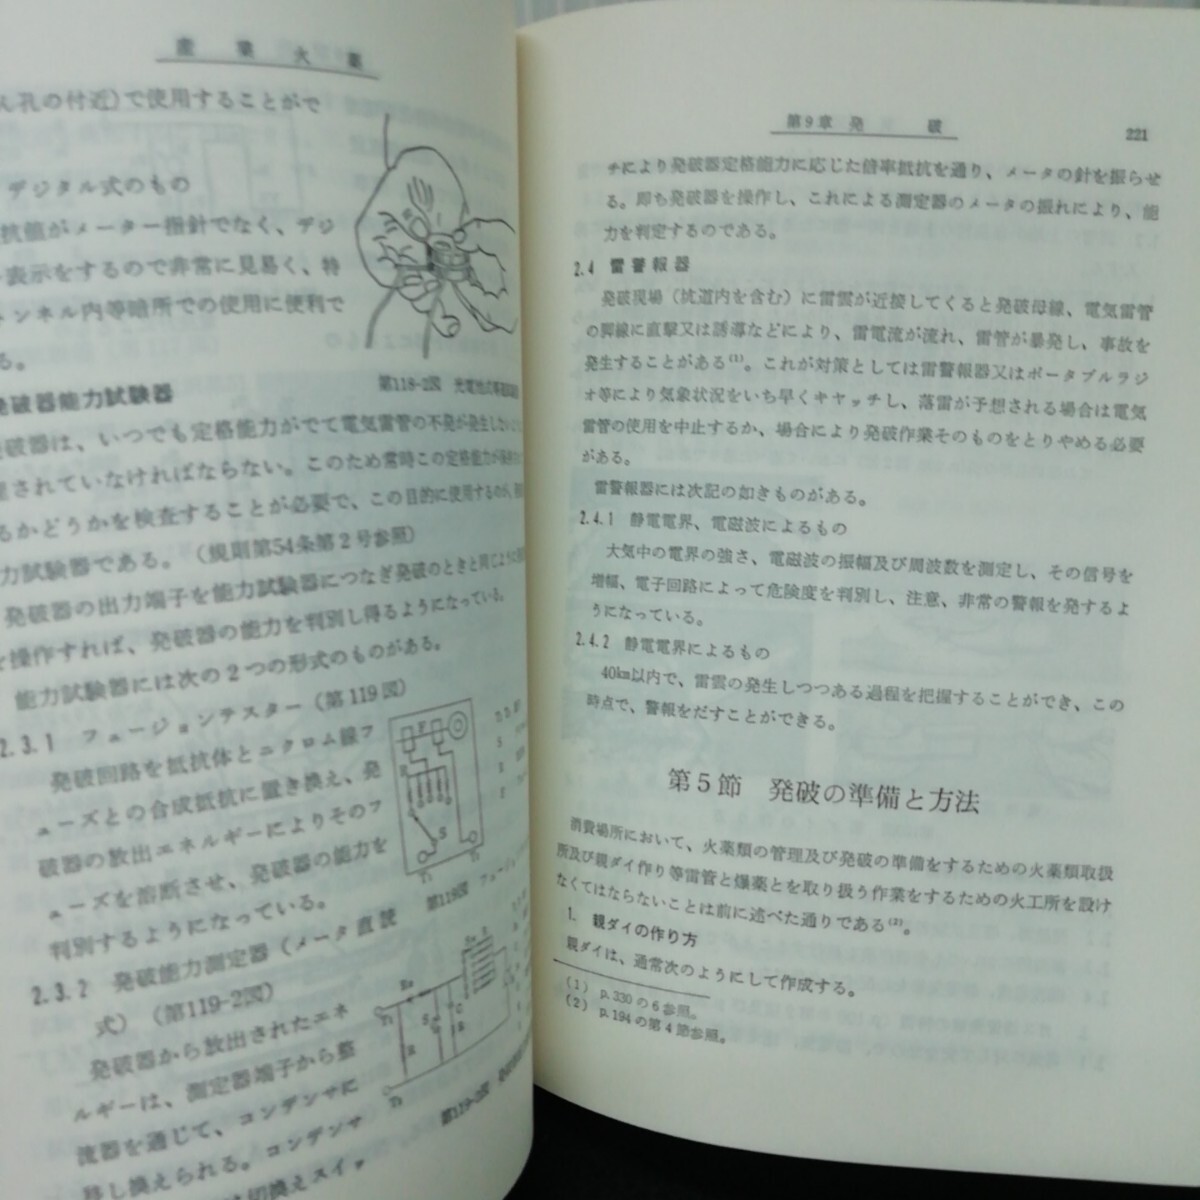 産業火薬
ん孔の付近)で使用することがで
デジタル式のもの
抗値がメーター指針でなく、デジ
表示をするので非常に見易く、特
ンネル内等暗所での使用に便利で
る。
第118-2図
発破器能力試験器
破器は、いつでも定格能力がでて電気雷管の不発が発生しない
されていなければならない。このため常時この定格能力が
るかどうかを検査することが必要で、この目的に使用するのが、
力試験器である。(規則第54条第2号参照)
発破器の出力端子を能力試験器につなぎ発破のときと同じように
操作すれば、発破器の能力を判別し得るようになっている。
能力試験器には次の2つの形式のものがある。
2.3.1 フュージョンテスター(第119図)
発破回路を抵抗体とニクロム線フ
ューズとの合成抵抗に置き換え、発
破器の放出エネルギーによりそのフ
ューズを溶断させ、発破器の能力を
判別するようになっている。
第119図
2.3.2 発破能力測定器(メータ直読
式)(第119-2図)
発破器から放出されたエネ
ルギーは、測定器端子から整
流器を通じて、コンデンサに
移し換えられる。コンデンサ
切換えスイッ
第119-2図
第9章 発破
221
チにより発破器定格能力に応じた倍率抵抗を通り、メータの針を振らせ
る。即ち発破器を操作し、これによる測定器のメータの振れにより、能
力を判定するのである。
2.4 雷警報器
発破現場(坑道内を含む)に雷雲が近接してくると発破母線、電気雷管
の脚線に直撃又は誘導などにより、雷電流が流れ、雷管が暴発し、事故を
発生することがある(1)。これが対策としては雷警報器又はポータブルラジ
オ等により気象状況をいち早くキャッチし、落雷が予想される場合は電気
雷管の使用を中止するか、場合により発破作業そのものをとりやめる必要
がある。
雷警報器には次記の如きものがある。
2.4.1 静電電界、電磁波によるもの
大気中の電界の強さ、電磁波の振幅及び周波数を測定し、その信号を
増幅、電子回路によって危険度を判別し、注意、非常の警報を発するよ
うになっている。
2.4.2 静電電界によるもの
40km以内で、雷雲の発生しつつある過程を把握することができ、この
時点で、警報をだすことができる。
第5節 発破の準備と方法
消費場所において、火薬類の管理及び発破の準備をするための火薬類取扱
所及び親ダイ作り等雷管と爆薬とを取り扱う作業をするための火工所を設け
なくてはならないことは前に述べた通りである(2)。
1. 親ダイの作り方
親ダイは、通常次のようにして作成する。
(1) p.330の6参照。
(2) p.194の第4節参照。